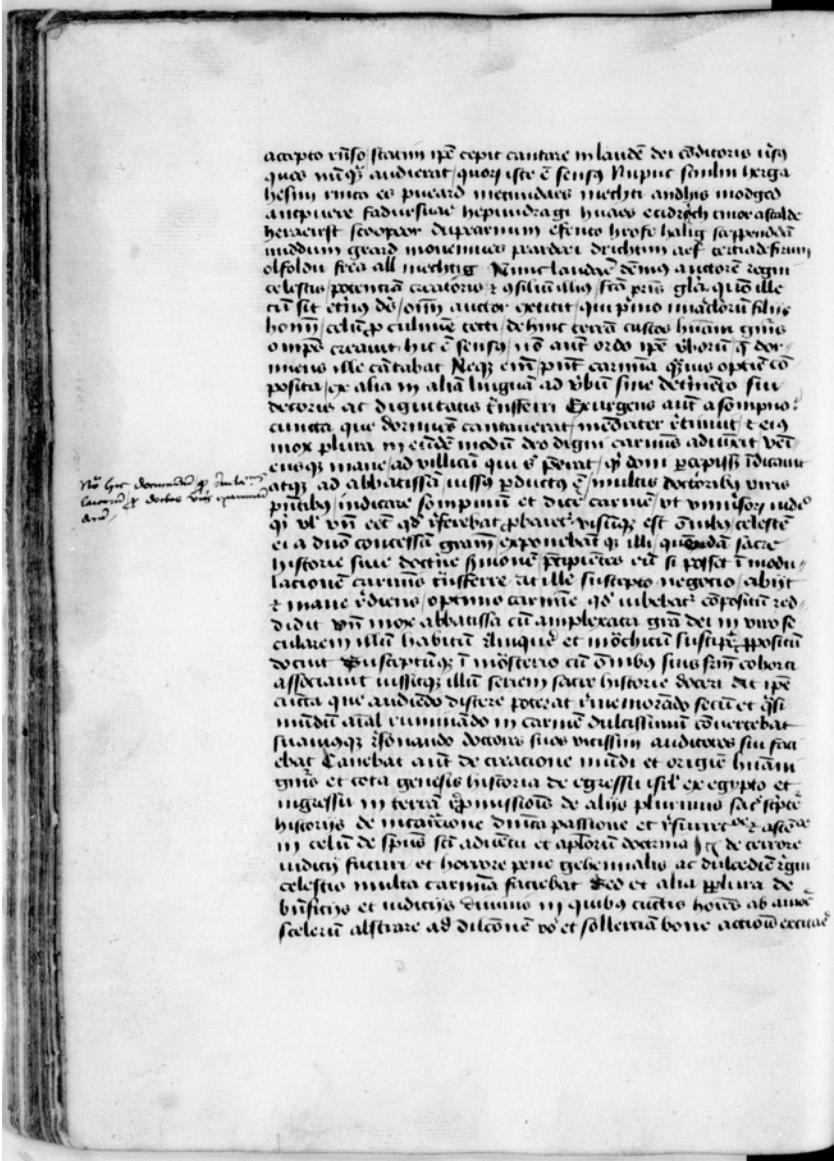 accepto rñso / statim ip̄e cepit cantare in laudē dei cōditoris ūsꝰ
quos nūq̄ȝ audierat / quoꝝ iste ē sensꝰ Nupuc sciulin herga
hefun ricaes pueard metundaes mechti and his modged
anc puere fadur suae he pundragi huaes ecidroch tuor astalde
he raeirst scoopeor du pearnum efento hrofe halig sceppend ða
middum geard moncinnes peardeci drichtin aef tertiade firum
olfoldu frea all mechtig Nunc laudare dēmꝰ auctorē regni
celestis / potenciā creatoris ⁊ ꝯsiliū illiꝰ / fc̄ā pr̄is gl̄ie quō ille
cū sit et̄nus dē / oīm auctor extitit / qui p̄mo miraclorū filijs
hoīm / celū ꝓ culmine tecti / dehinc terrā custos hūani gn̄is
omp̄s creauit hic ē sensꝰ / nō aūt ordo ip̄e v̄borū / q̄ dor-
miens ille cātabat Neqȝ em̄ / pn̄t carmīa q̄uis optīe cō
posita / ex alia in aliā linguā ad v̄bū sine det̄mēto sui
decoris ac dignitatis t̄nsferri Exurgens aūt a sompno
cuncta que dormiēs cantauerat / mēoriter r̄tinuit / ⁊ eis
mox plura in eūdē modū deo digni carmīs adiūxit Veni
ensqȝ mane / ad villicū qui s̄ p̄erat / q̄ doni p̄cepiss̄ īdicauit
atqȝ ad abbatissā iussꝰ p̄ductꝰ ē / multis doctoribȝ viris
pn̄tibȝ / indicare sompniū et dice carmē / vt vniūsoꝝ iudio
q̄ vl' vn̄ eēt qd' r̄ferebat ꝓbaret᷑ visūqȝ est ōibȝ celestē
ei a dn̄o concessā grām / exponebāt qȝ illi / quendā sacre
historie siue doctrīe s̄monē p̄cipientes eū si posset ī modu-
lacionē carmīs t̄nsferre At ille suscepto negotio / abijt
⁊ mane r̄diens / optimo carmīe qd' iubebat᷑ cōpositū red-
didit Vn̄ mox abbatissa cū amplexata grā dei in viro se
cularem illū habitū r̄linquē et mōchicū suscip̄e ꝓpositū
docuit Susceptūqȝ ī mōsterio cū ōnibȝ suis fr̄m cohorti
associauit iussitqȝ illū seriem sacre historie doceri At ip̄e
cūcta que audiēdo discere poterat r̄memorādo secū et q̄si
mūdū aīal ruminādo in carmē dulcissimū cōvertebat
suauiusqȝ r̄sonando doctores suos vicissim auditores sui faci
ebat Canebat aūt de creacione mūdi et origīe hūani
gn̄is et tota genesis historia de egressu isrl' ex egypto et
ingressu in terrā r̄pmissiōis de alijs plurimis sac̄ sc̄pte
historijs de incarcione dn̄ica passione et r̄surrec̄oe ⁊ ascēōe
in celū de sp̄us sc̄ti aduētu et apl'orū doctrina Itē de terrore
iudicij futuri et horrore pene gehennalis ac dulcedīe r̄gni
celestis multa carmīa faciebat Sed et alia ꝑplura de
bn̄ficijs et iudicijs diuinis in quibȝ cūctis hoīes ab amore
scelerū abstrare ad dilcōnem vō et sollerciā bone actiōis excitare